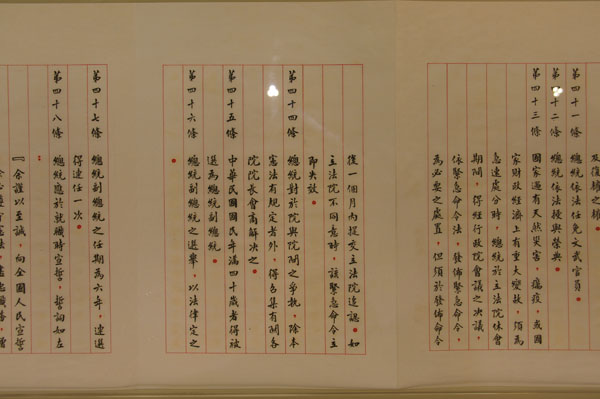 及復權之權。
第四十一條　總統依法任免文武官員。
第四十二條　總統依法授與榮典。
第四十三條　國家遇有天然災害，癘疫，或國
家財政經濟上有重大變故，須為
急速處分時，總統於立法院休會
期間，得經行政院會議之決議，
依緊急命令法，發佈緊急命令，
為必要之處置，但須於發佈命令
後一個月內提交立法院追認。如
立法院不同意時，該緊急命令立
即失效。
第四十四條　總統對於院與院間之爭執，除本
憲法有規定者外，得召集有關各
院院長會商解決之。
第四十五條　中華民國國民年滿四十歲者得被
選為總統副總統。
第四十六條　總統副總統之選舉，以法律定之
。
第四十七條　總統副總統之任期為六年，連選
得連任一次。
第四十八條　總統應於就職時宣誓，誓詞如左
：
『余謹以至誠，向全國人民宣誓